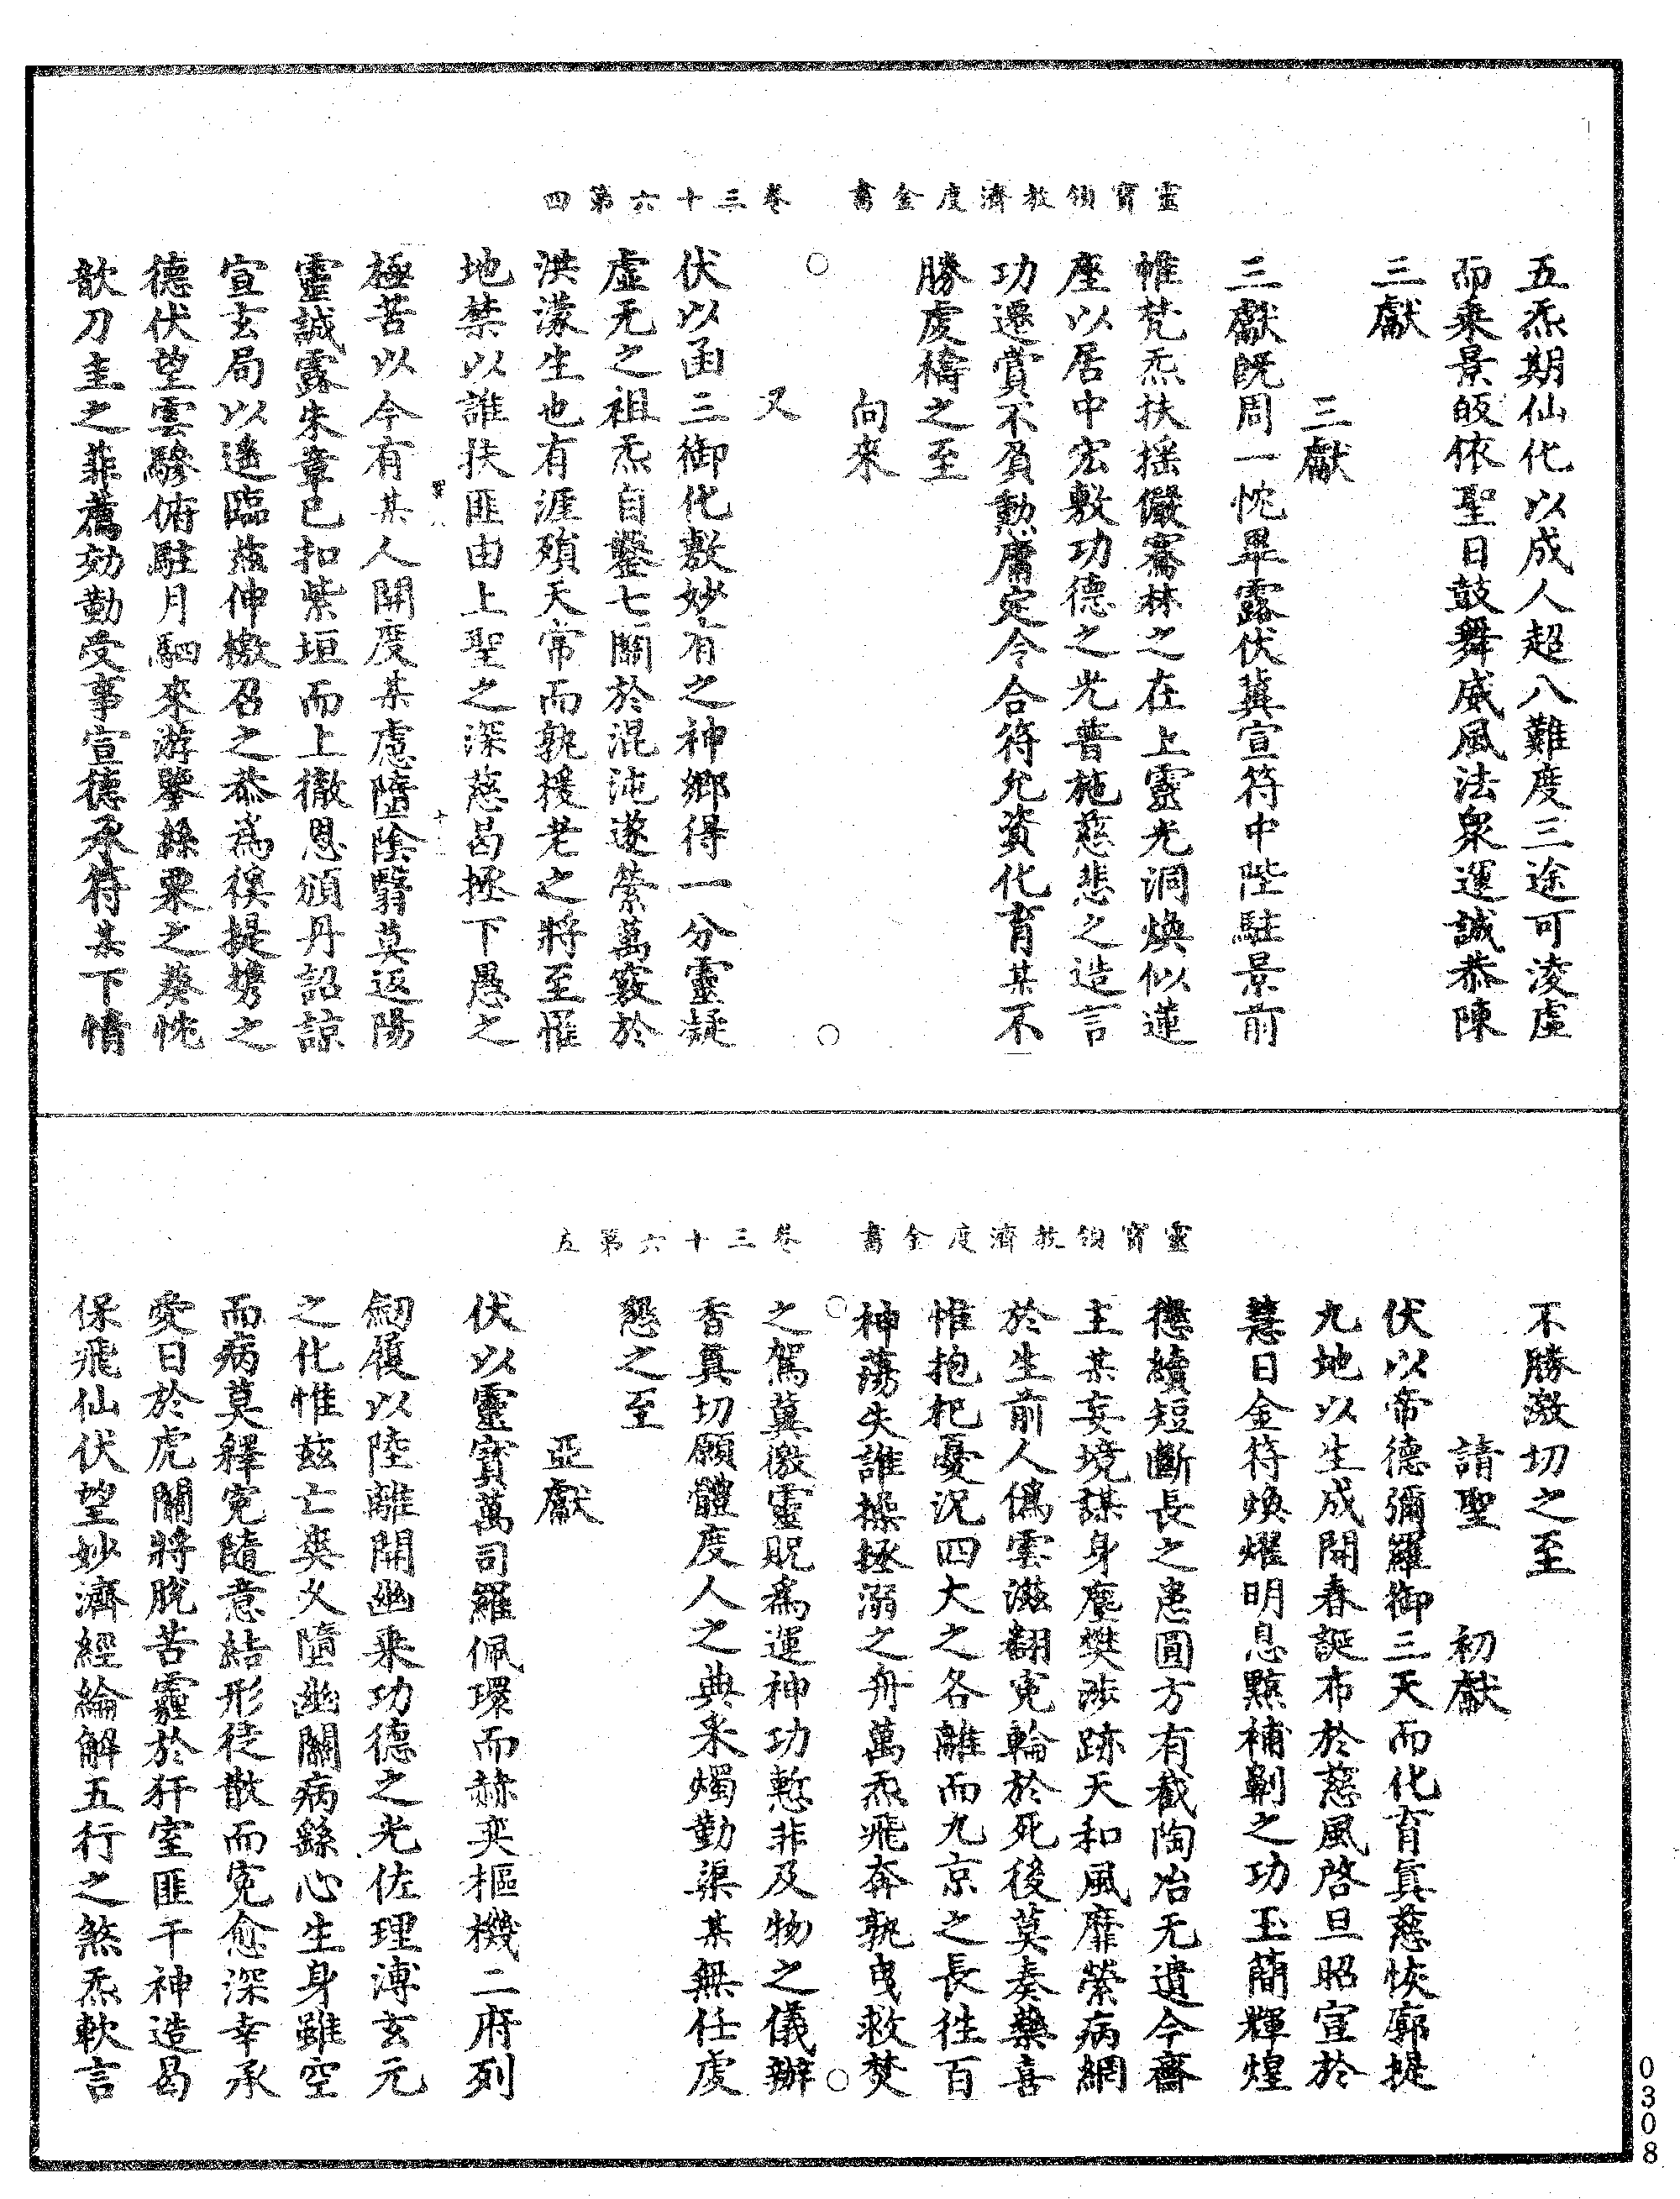 靈寶領教濟度金書　卷三十六第四
五炁期仙化以成人超八難度三途可淩虛
而乘景皈依聖日鼓舞威風法衆運誠恭陳
三獻
三獻
三獻旣周一忱畢露伏冀宣符中陛駐景前
帷梵炁扶搖儼騫林之在上靈光洞煥似蓮
座以居中宏敷功德之光普施慈悲之造言
功遷賞不負勳庸定令合符允資化育某不
勝虔禱之至
向來
○　○
又
伏以函三御化敷妙有之神鄉得一分靈凝
虛无之祖炁自鑿七關於混沌遂縈萬竅於
洪濛生也有涯殞天常而孰援老之將至罹
地禁以誰扶匪由上聖之深慈曷拯下愚之
極苦以今有某人開度某慮墮陰翳莫返陽
靈誠露朱章已扣紫垣而上徹恩頒丹詔諒
宣玄局以遙臨兹伸檄召之恭爲徯提㩗之
德伏望雲驂俯駐月駟來游擧絲栗之葵忱
歆刀圭之菲薦効勤受事宣德承符某下情
靈寶領教濟度金書　卷三十六第五
不勝激切之至
請聖　初獻
伏以帝德彌羅御三天而化育眞慈恢廓提
九地以生成開春誕布於慈風啓旦昭宣於
慧日金符煥燿明息黥補劓之功玉簡輝煌
懋續短斷長之惠圓方有截陶冶无遺今齋
主某妄境謀身塵樊涉跡天和風靡縈病網
於生前人僞雲滋翻寃輪於死後莫奏藥喜
惟抱杞憂況四大之各離而九京之長往百
神蕩失誰操拯溺之舟萬炁飛奔孰曳救焚
○　○
之駕冀徼靈貺爲運神功慙非及物之儀辦
香眞切願體度人之典来燭勤渠某無任虔
懇之至
亞獻
伏以靈寳萬司羅佩環而赫奕樞機二府列
劒履以陸離開幽乘功德之光佐理溥玄元
之化惟兹亡奭久墮幽關病繇心生身雖空
而病莫釋寃隨意結形徒散而寃愈深幸承
愛日於虎關將脫苦霾於犴室匪干神造曷
保飛仙伏望妙濟經綸解五行之煞炁軟言
0308